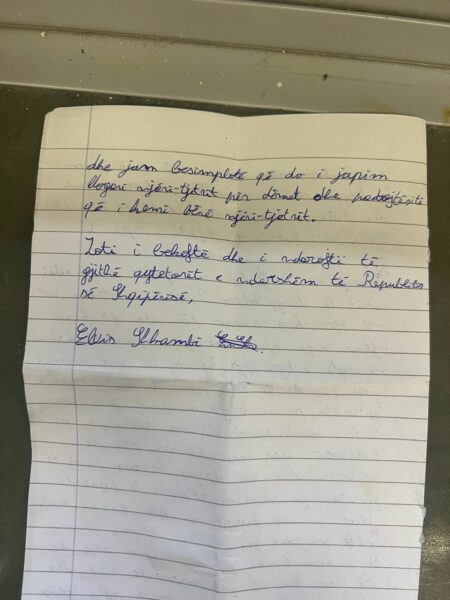 dhe jam besimplotë që do i japim
llogari njëri-tjetrit për dëmet dhe padrejtësitë
që i kemi bërë njëri-tjetrit.
Zoti i bekoftë dhe i ndeροftë të
gjithë qytetarët e ndershëm të Republikës
së Shqipërisë,
Elvis Shambi